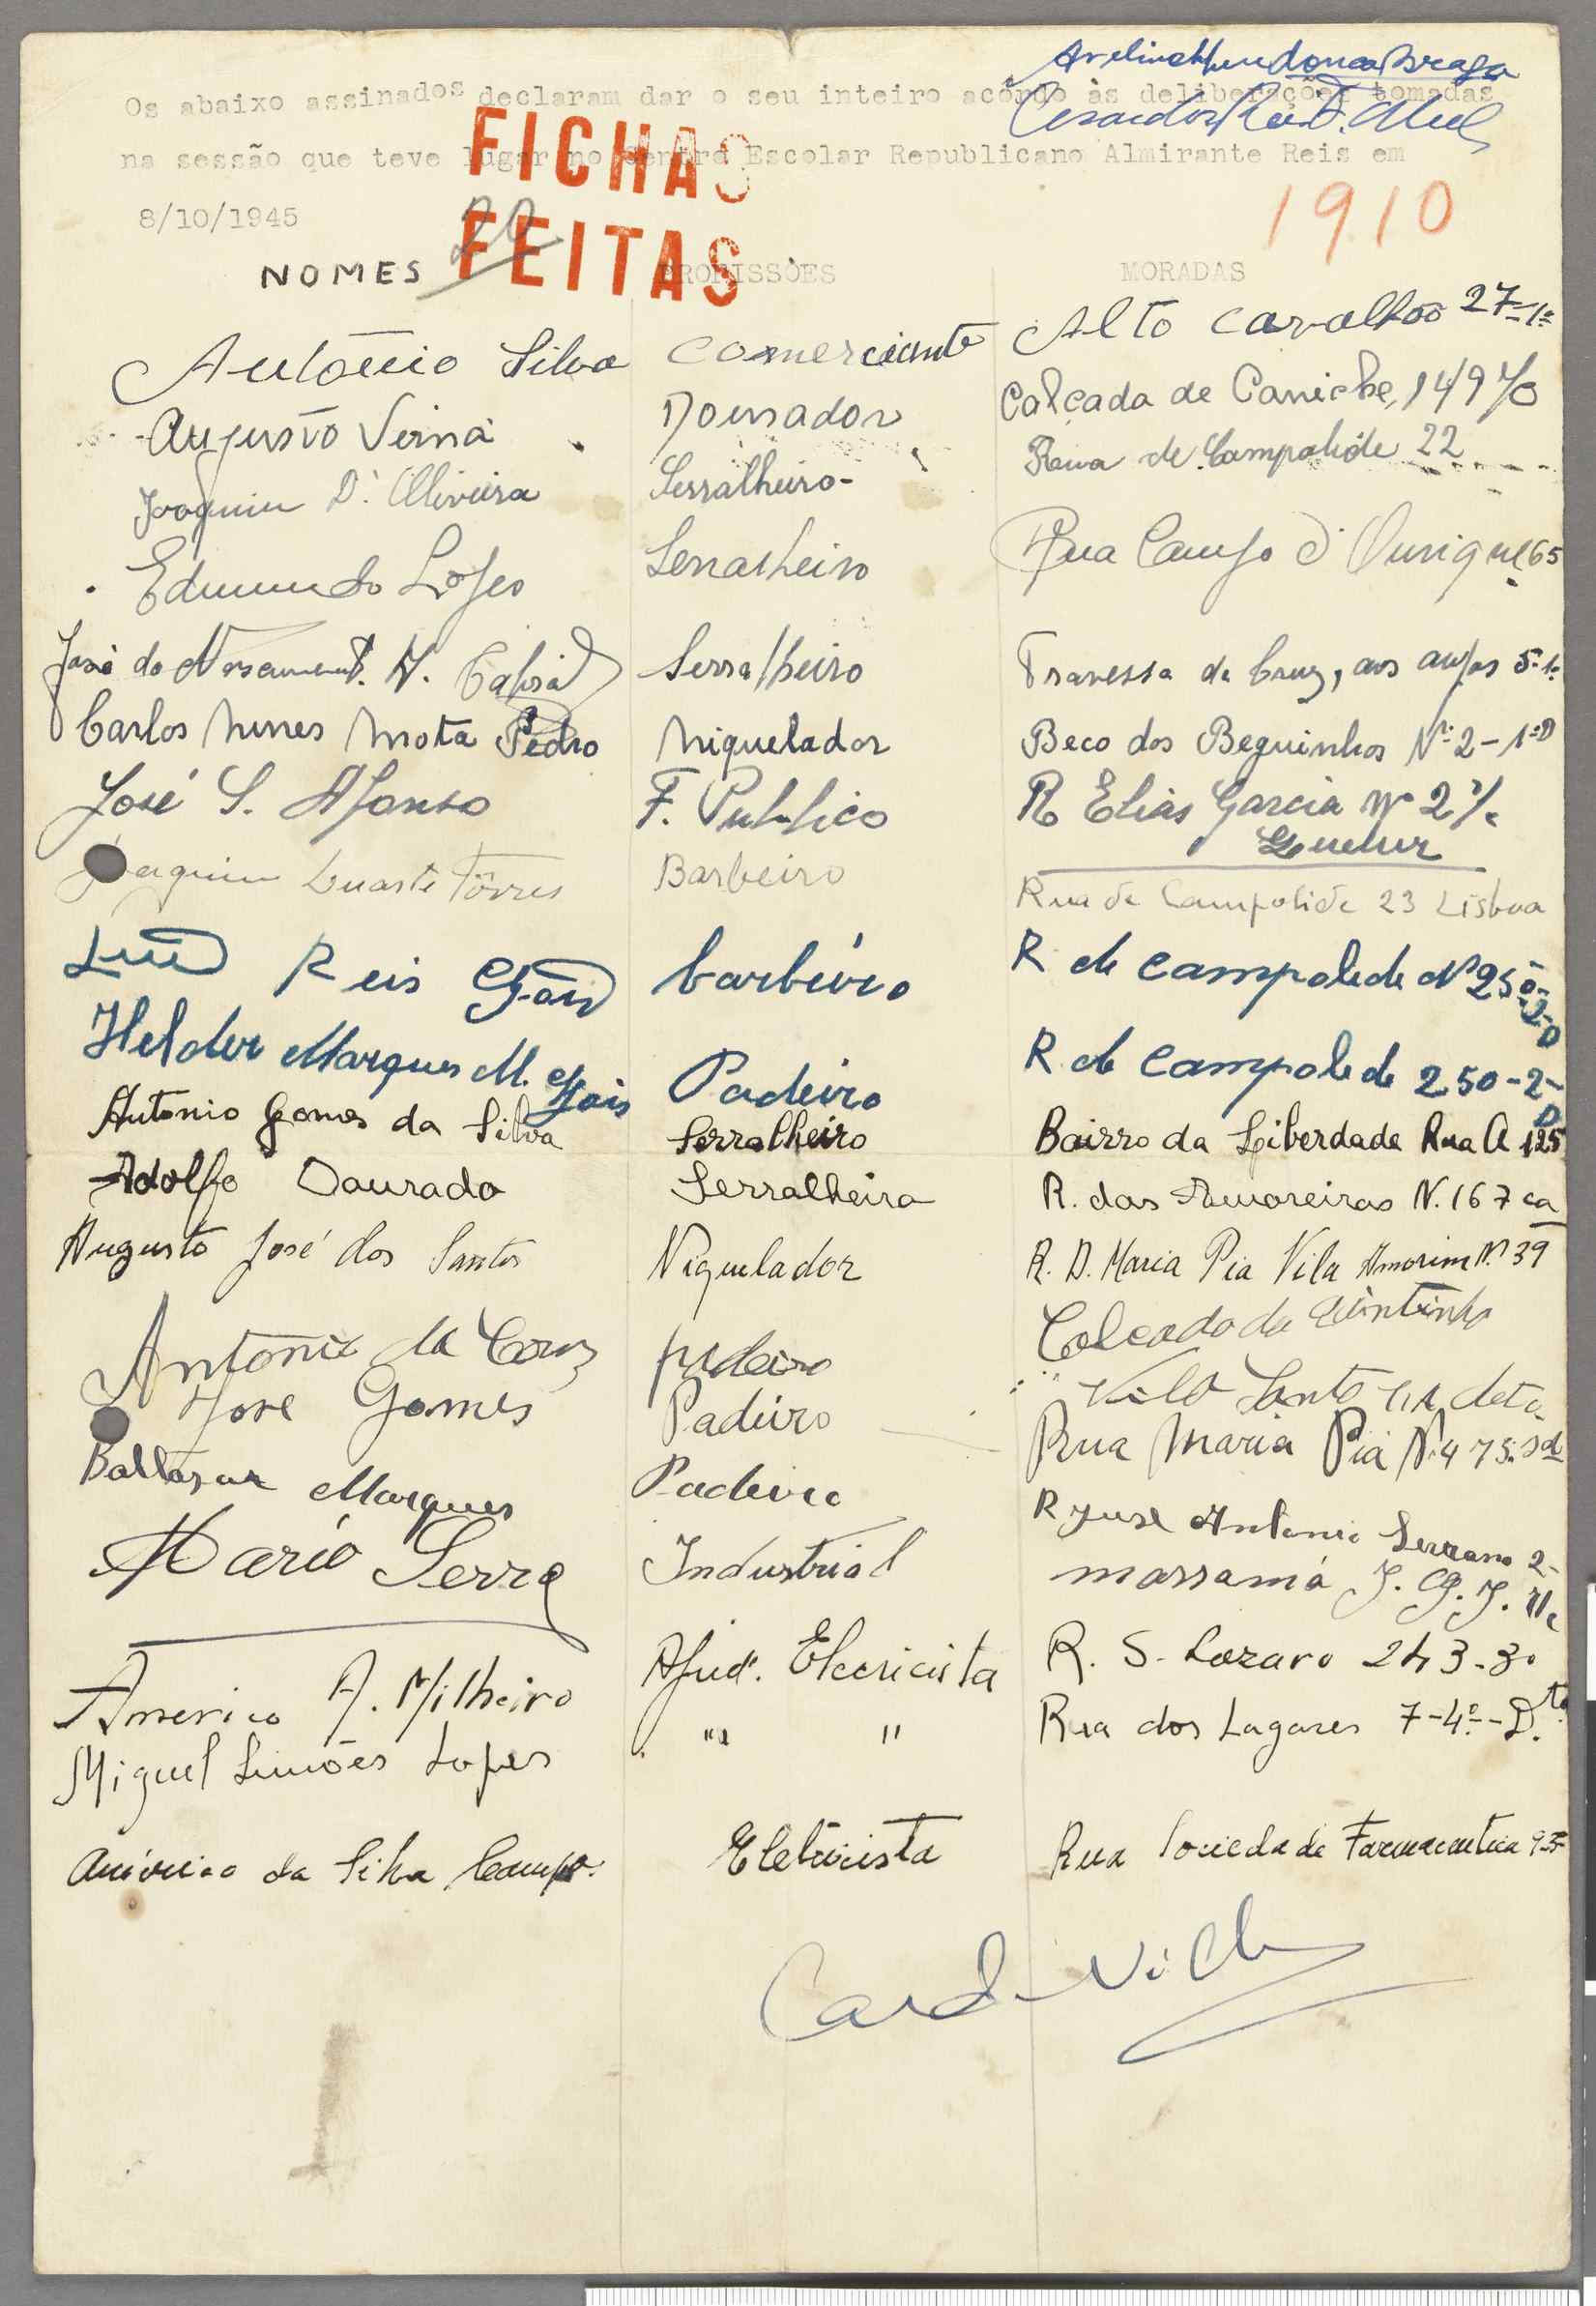 Braga
Os abaixo assinados declaram dar o seu inteiro acôrdo às deliberações tomadas
na sessão que teve lugar no Centro Escolar Republicano Almirante Reis em
8/10/1945
FICHAS
FEITAS
22
1910
NOMES PROFISSÕES MORADAS
António Silva Comerciante Alto Carvalhão 27-1º
Augusto Dourador Calçada de Carriche, 149 %
Joaquim D'Oliveira Serralheiro- Rua de Campolide 22
Edmundo Lopes Serralheiro Rua Campo d'Ourique 65
José do Nascimento. A. Cabral Serralheiro Travessa da Cruz, aos anjos 5-1º
Carlos Nunes Mota Pedro Niquelador Beco dos Beguinhos Nº 2-1º D
José S. Afonso F. Publico R Elias Garcia Nº 2
Joaquim Duarte Tôrres Barbeiro Rua de Campolide 23 Lisboa
Luis Reis Gois barbeiro R. de campolede Nº 250-2-D
Helder Marques M. Gois Padeiro R. de campolede 250-2-D
Antonio Gomes da Silva Serralheiro Bairro da Liberdade Rua A 125
Adolfo Dourado Serralheiro R. das Amoreiras N. 167 ca
Augusto José dos Santos Niquelador R. D. Maria Pia Vila Amorim Nº 39
António da Cruz padeiro Calcada da Quintinha
José Gomes Padeiro Rua Maria Pia Nº 475
Baltasar Marques Padeiro R José Antonio Serrano 2-
Mario Serra Industrial massamá J. G. J.
Americo A. Milheiro Ajud. Elecricista R. S. Lazaro 243-3º
Miguel Simões Lopes " " Rua dos Lagares 7-4º-D.to
da Silva Campos Eletricista Rua Sociedade Farmaceutica